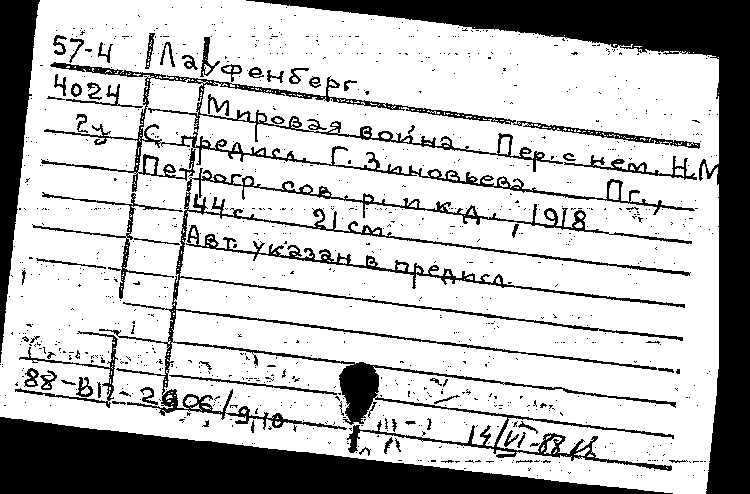 57-4 Лауфенберг.
4024 Мировая война. Пер. с нем. Н.М
2у С предисл. Г. Зиновьева. Пг.,
Петрогр. сов. р. и к. д., 1918
44 с. 21 см.
Авт. указан в предисл.
88-ВП-2906/910 14/VI-88